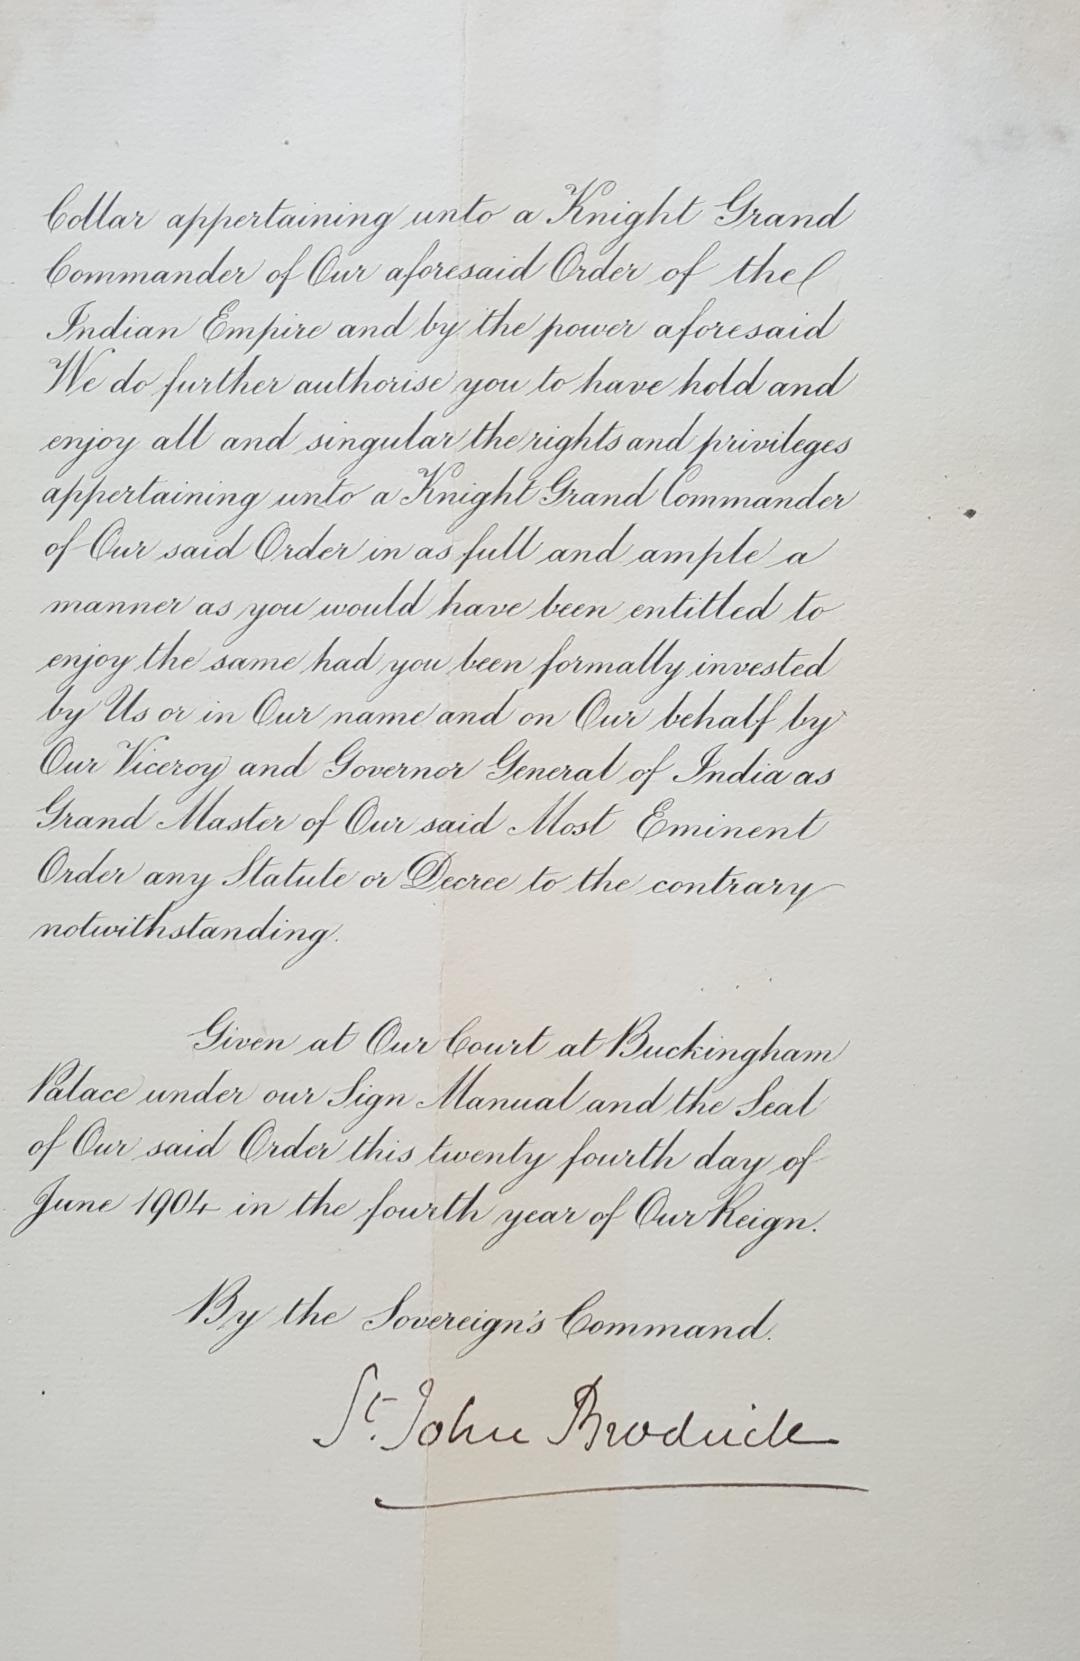 Collar appertaining unto a Knight Grand
Commander of Our aforesaid Order of the
Indian Empire and by the power aforesaid
We do further authorise you to have hold and
enjoy all and singular the rights and privileges
appertaining unto a Knight Grand Commander
of Our said Order in as full and ample a
manner as you would have been entitled to
enjoy the same had you been formally invested
by Us or in Our name and on Our behalf by
Our Viceroy and Governor General of India as
Grand Master of Our said Most Eminent
Order any Statute or Decree to the contrary
notwithstanding.
Given at Our Court at Buckingham
Palace under our Sign Manual and the Seal
of Our said Order this twenty fourth day of
June 1904 in the fourth year of Our Reign.
By the Sovereign's Command.
St. John Brodrick